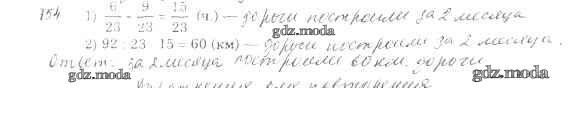 154 1) 6/23 + 9/23 = 15/23 (ч.) — дороги построили за 2 месяца
gdz.moda
2) 92 : 23 · 15 = 60 (км) — дороги построили за 2 месяца.
gdz.moda
Ответ: за 2 месяца построили 60 км. дороги
gdz.moda gdz.moda